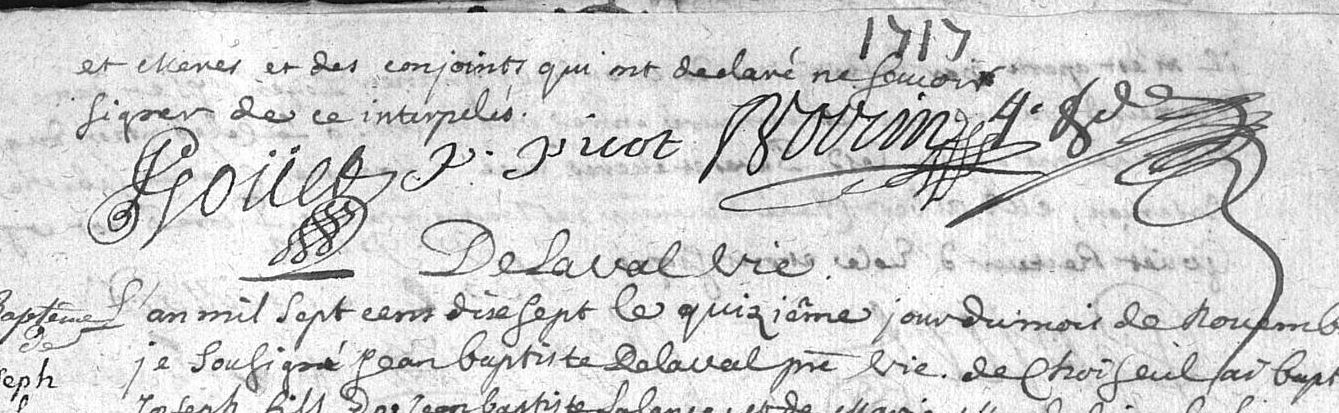 1717
et meres et des conjoints qui ont declaré ne scavoir
signer de ce interpelés.
P. Picot
Delaval vic.
Baptême L'an mil sept cens dise sept le quiziême jour du mois de Novemb
de
je sousigné Jean baptiste Delaval prê vic. de Choiseul ai bapt
seph
Joseph fils de Jean baptiste et de Marie